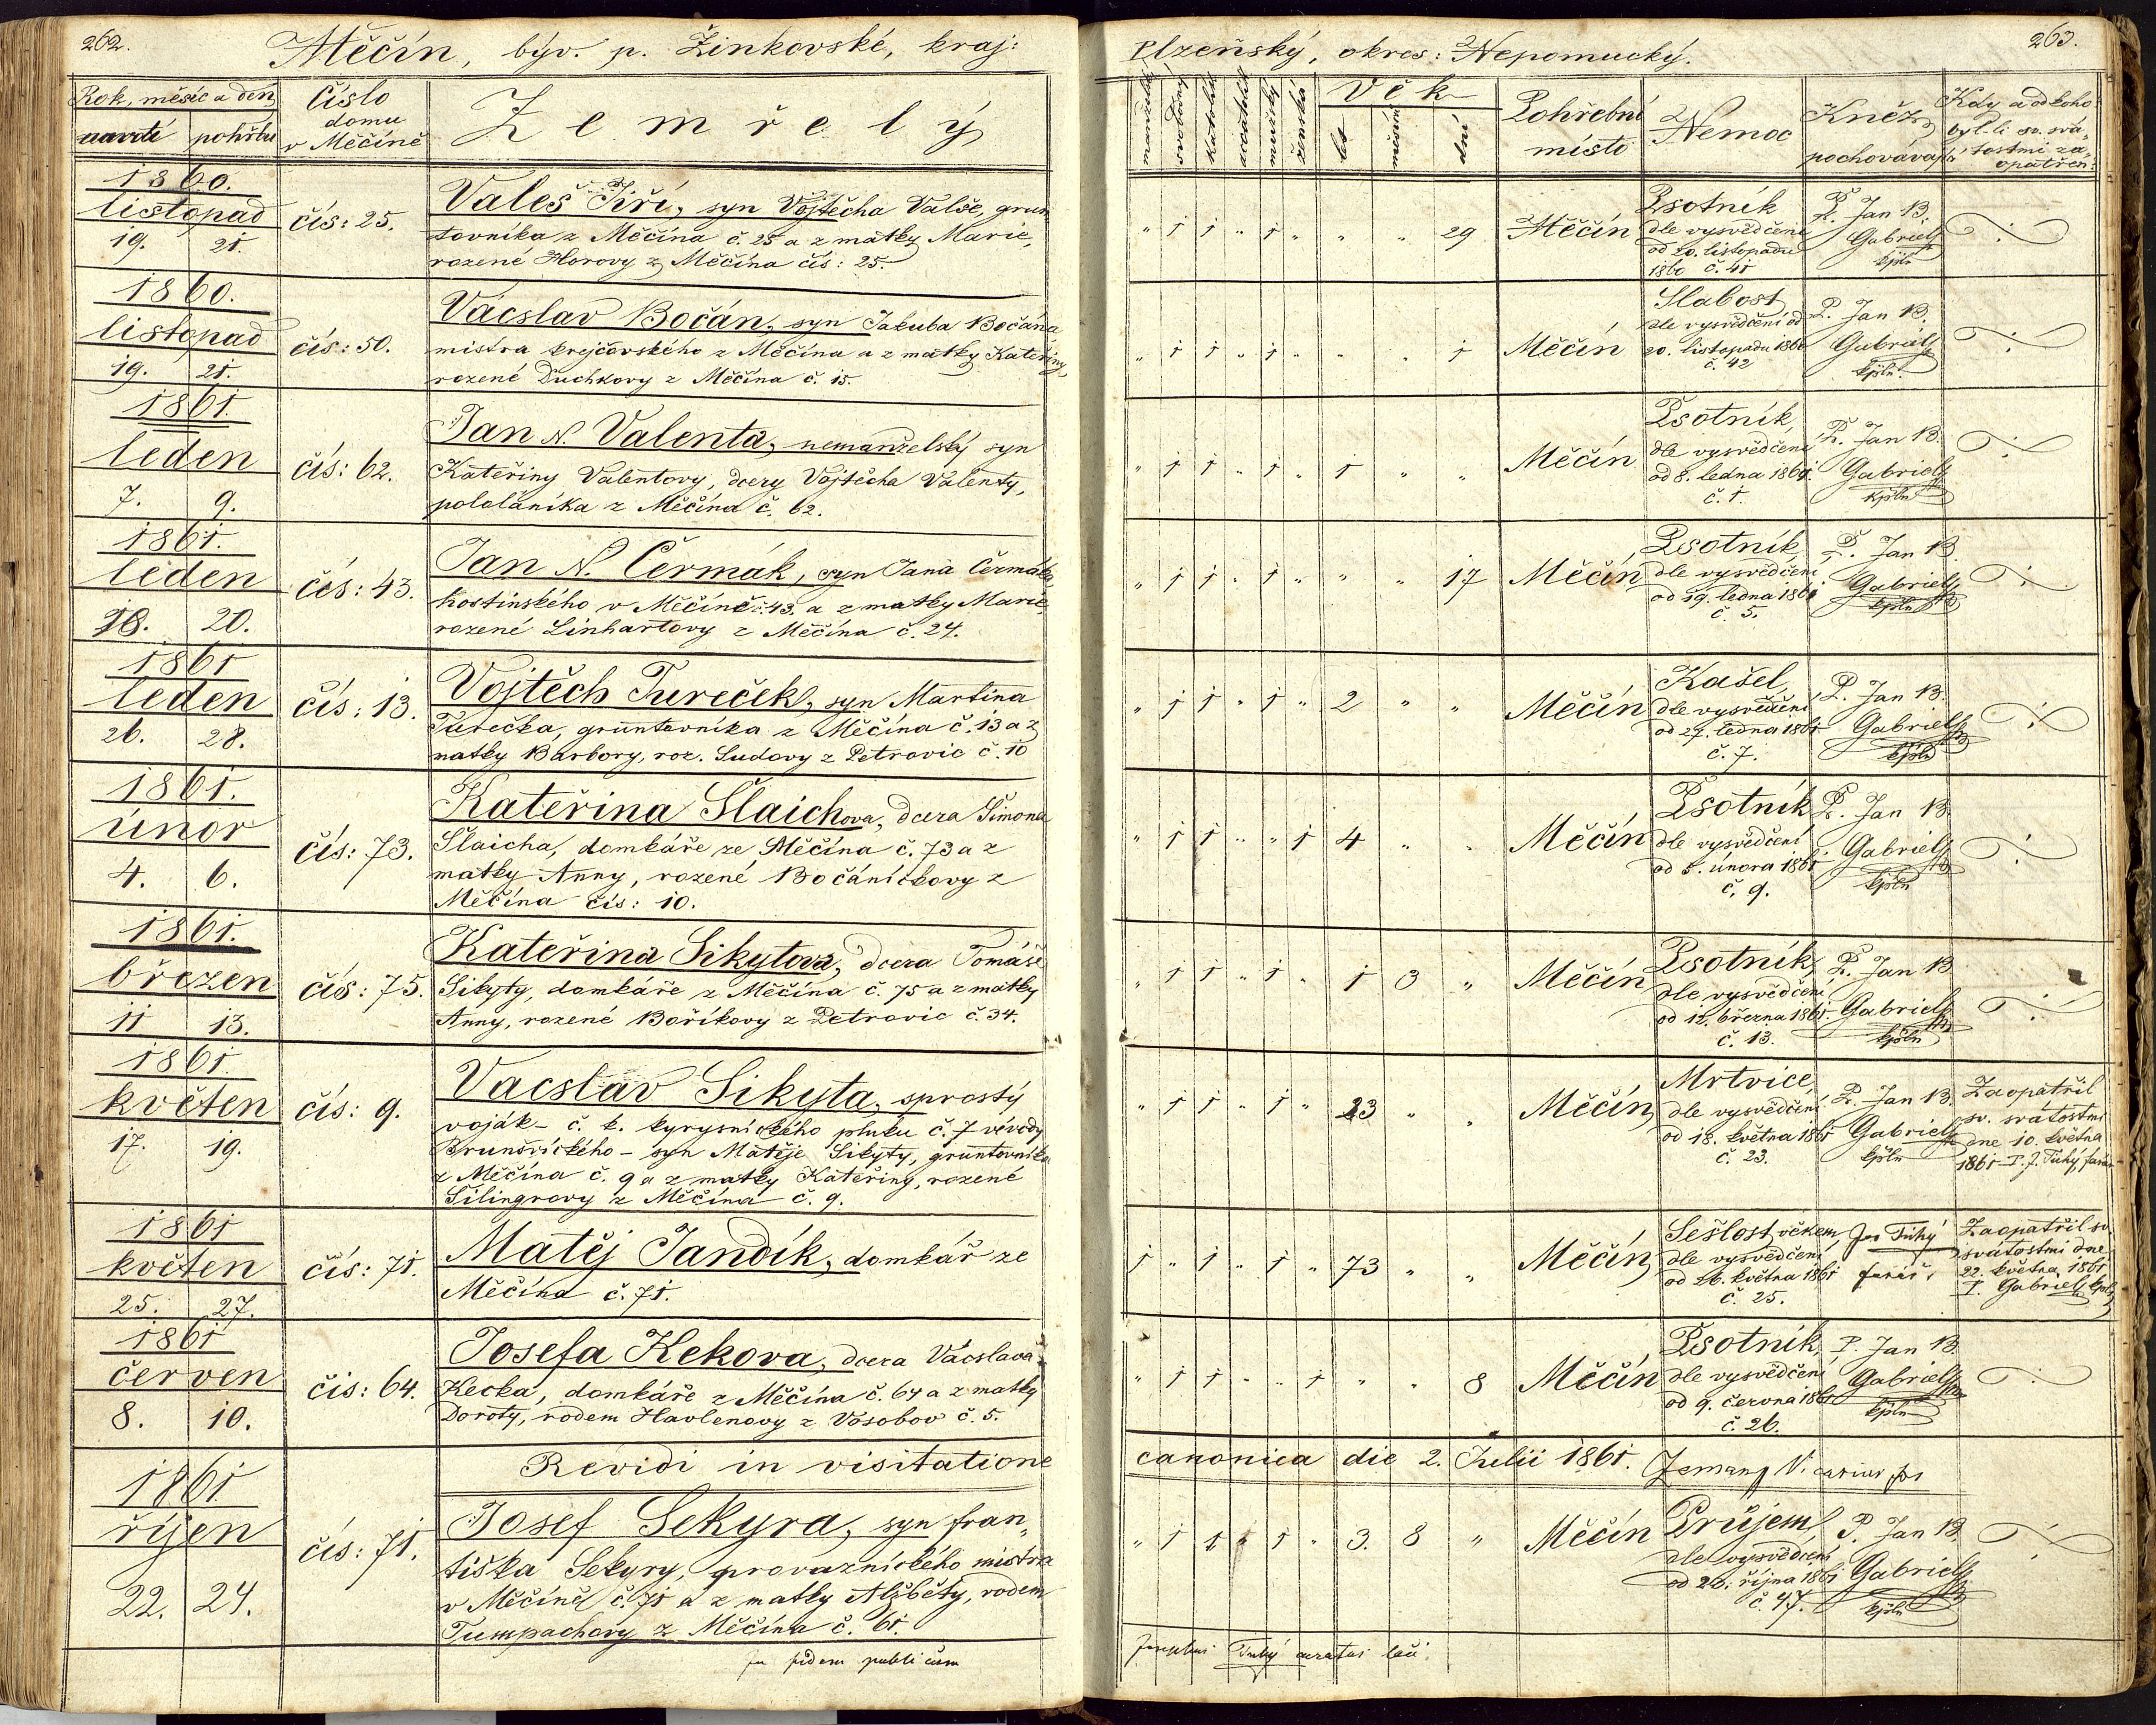 262.
Měčín, býv. p. Žinkovské, kraj:
Rok, měsíc a den
úmrtí pohřbu
Číslo
domu
v Měčíně
Zemřelý
1860.
listopad
19. 21.
čís: 25.
Valeš Jiří, syn Vojtěcha Valše, grun
tovníka z Měčína č. 25 a z matky Marie,
rozené Horovy z Měčína čís: 25.
1860.
listopad
19. 21.
čís: 50.
Vácslav Bočán, syn Jakuba Bočána
mistra krejčovského z Měčína a z matky Kateřiny,
rozené Duchkovy z Měčína č. 15.
1861.
leden
7. 9.
čís: 62.
Jan N. Valenta, nemanželský syn
Kateřiny Valentovy, dcery Vojtěcha Valenty,
pololáníka z Měčína č. 62.
1861.
leden
18. 20.
čís: 43.
Jan N. Čermák, syn Jana Čermáka
hostinského v Měčíně č. 43. a z matky Marie
rozené Linhartovy z Měčína č. 24.
1861
leden
26. 28.
čís: 13.
Vojtěch Tureček, syn Martina
Turečka, gruntovníka z Měčína č. 13 a z
matky Barbory, roz. Sudovy z Petrovic č. 10
1861.
únor
4. 6.
čís: 73.
Kateřina Šlaichova, dcera Šimona
Šlaicha, domkáře ze Měčína č. 73 a z
matky Anny, rozené Bočáníčkovy z
Měčína čís: 10.
1861.
březen
11 13.
čís: 75.
Kateřina Sikytova, dcera Tomáše
Sikyty, domkáře z Měčína č. 75 a z matky
Anny, rozené Boříkovy z Petrovic č. 34.
1861.
květen
17. 19.
čís: 9.
Vacslav Sikyta, sprostý
voják – c. k. kyrysnického pluku č. 7 vévody
Brunšvického – syn Matěje Sikyty, gruntovníka
z Měčína č. 9 a z matky Kateřiny, rozené
Šilingrovy z Měčína č. 9.
1861
květen
25. 27.
čís: 71.
Matěj Jandík, domkář ze
Měčína č. 71.
1861
červen
8. 10.
čis: 64.
Josefa Kekova, dcera Vácslava
Kecka, domkáře z Měčína č. 64 a z matky
Doroty, rodem Havlenovy z Vosobov č. 5.
Revidi in visitatione
1861.
říjen
22. 24.
čís: 71.
Josef Sekyra, syn fran„
tiška Sekyry, provaznického mistra
v Měčíně č. 71 a z matky Alžběty, rodem
Tumpachovy z Měčína č. 61.
fidem publicam
263.
Plzeňský, okres: Nepomucký.
manželský
svobodný
katolík
acatolík
mužský
ženská
Věk
let
měsíců
dní
Pohřební
místo
Nemoc
Kněz
pochovávající
Kdy a od koho
byl-li sv. svá„
tostmi za„
opatřen:
„ 1 1 „ 1 „ „ „ 29 Měčín
Psotník
dle vysvědčení
od 20. listopadu
1860 č. 41
P. Jan B.
Gabriel
kpln
„ 1 1 „ 1 „ „ „ 1 Měčín
Slabost
dle vysvědčení od
20. listopadu 1860
č. 42
P. Jan B.
Gabriel
kpln.
„ 1 1 „ 1 „ 1 „ „ Měčín
Psotník,
dle vysvědčení
od 8. ledna 1861.
č. 1.
P. Jan B.
Gabriel
kpln
„ 1 1 „ 1 „ „ „ 17 Měčín
Psotník
dle vysvědčení
od 19. ledna 1861
č. 5.
P. Jan B.
Gabriel
kpln
„ 1 1 „ 1 „ 2 „ „ Měčín
Kašel,
dle vysvědčení
od 27. ledna 1861
č. 7.
P. Jan B.
Gabriel
kpln
„ 1 1 „ „ 1 4 „ „ Měčín
Psotník
dle vysvědčení
od 5. února 1861
č. 9.
P. Jan B.
Gabriel
kpln
„ 1 1 „ 1 „ 1 3 „ Měčín
Psotník,
dle vysvědčení
od 12. března 1861
č. 13.
P. Jan B
Gabriel
kpln
„ 1 1 „ 1 „ 23 „ „ Měčín
Mrtvice,
dle vysvědčení
od 18. května 1861
č. 23.
P. Jan B.
Gabriel
kpln
Zaopatřil
sv. svátostmi
dne 10. května
1861 P. J. Tuhý, farář
1 „ 1 „ 1 „ 73 „ „ Měčín
Sešlost věkem,
dle vysvědčení
od 26. května 1861
č. 25.
Jos Tuhý
farář
Zaopatřil sv.
svátostmi dne
22. května 1861
P. Gabriel kpln
„ 1 1 „ „ 1 „ „ 8 Měčín
Psotník,
dle vysvědčení
od 9. června 1861
č. 26.
P. Jan B
Gabriel
kpln
canonica die 2. Julii 1861. Zeman Vicarius for
„ 1 1 „ 1 „ 3. 8 „ Měčín
Průjem,
dle vysvědčení
od 23. října 1861
č. 47.
P. Jan B.
Gabriel
kpln
Josephus Tuhý curatus loci